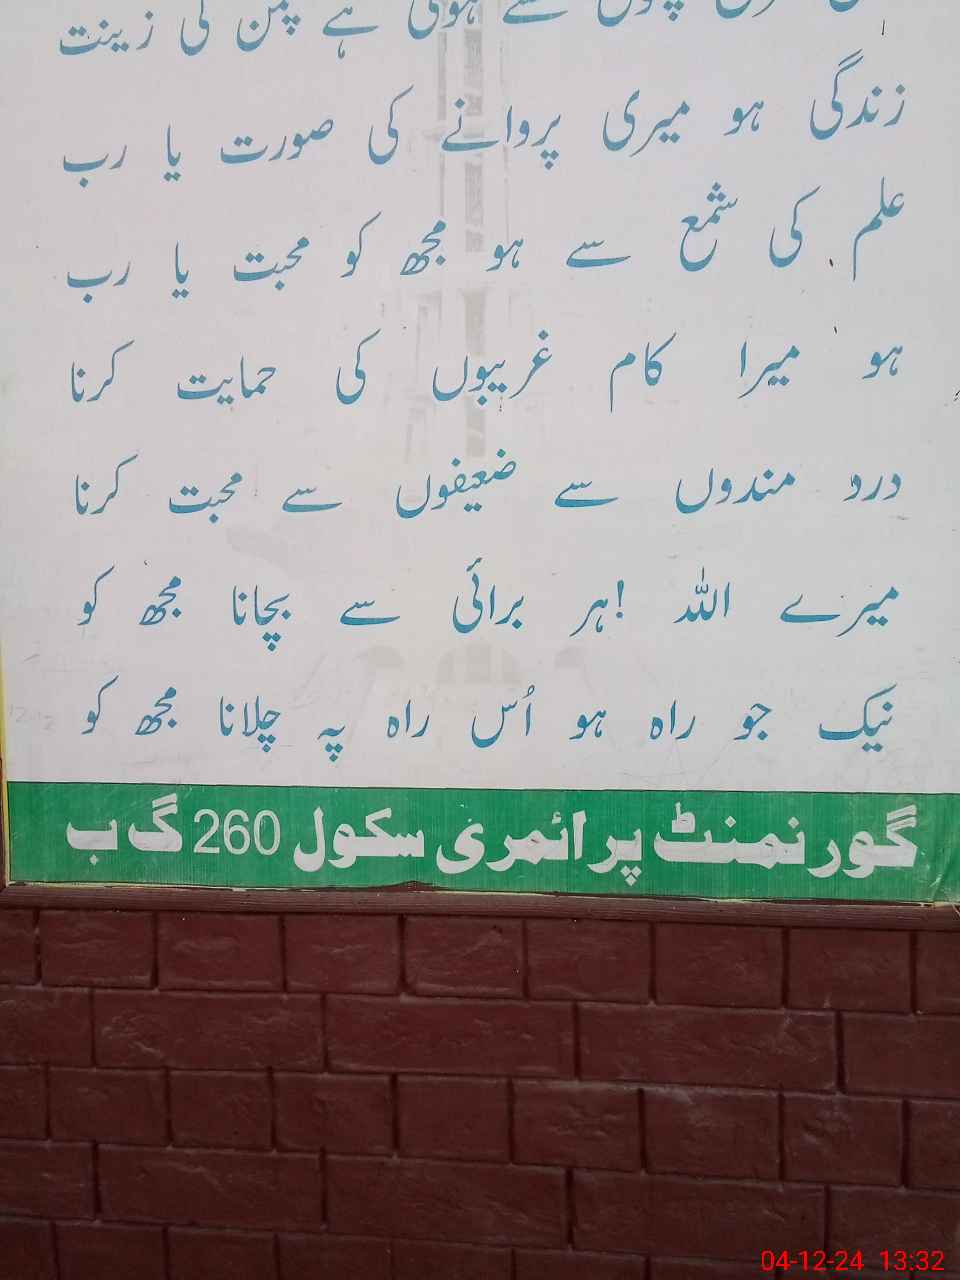 سے ہوتی ہے چمن کی زینت
زندگی ہو میری پروانے کی صورت یا رب
علم کی شمع سے ہو مجھ کو محبت یا رب
ہو میرا کام غریبوں کی حمایت کرنا
درد مندوں سے ضعیفوں سے محبت کرنا
میرے اللہ !ہر برائی سے بچانا مجھ کو
نیک جو راہ ہو اُس راہ پہ چلانا مجھ کو
گورنمنٹ پرائمری سکول 260 گ ب
04-12-24 13:32